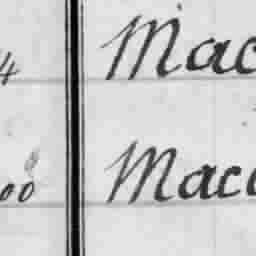 4 Mac
00 Mac